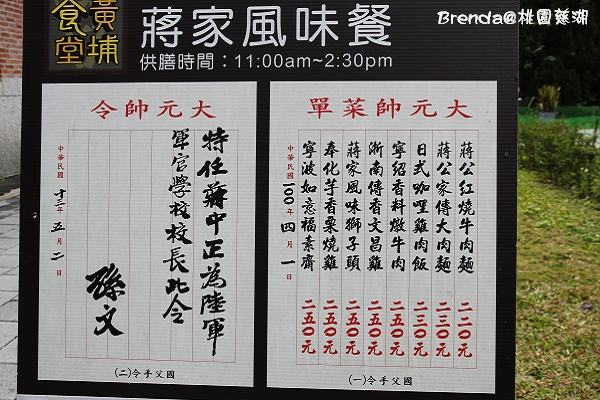 Brenda@桃園慈湖
黃埔
食堂
蔣家風味餐
供膳時間：11:00am~2:30pm
大元帥菜單
蔣公紅燒牛肉麵 二二〇元
蔣公家傳大肉麵 二三〇元
日式咖哩雞肉飯 二三〇元
寧紹香料燉牛肉 二五〇元
浙南傳香文昌雞 二五〇元
蔣家風味獅子頭 二五〇元
奉化芋香栗燒雞 二五〇元
寧波如意福素齋 二五〇元
中華民國一〇〇年四月一日
國父手令(一)
大元帥令
特任蔣中正為陸軍
軍官學校校長此令
孫文
中華民國十三年五月二日
國父手令(二)